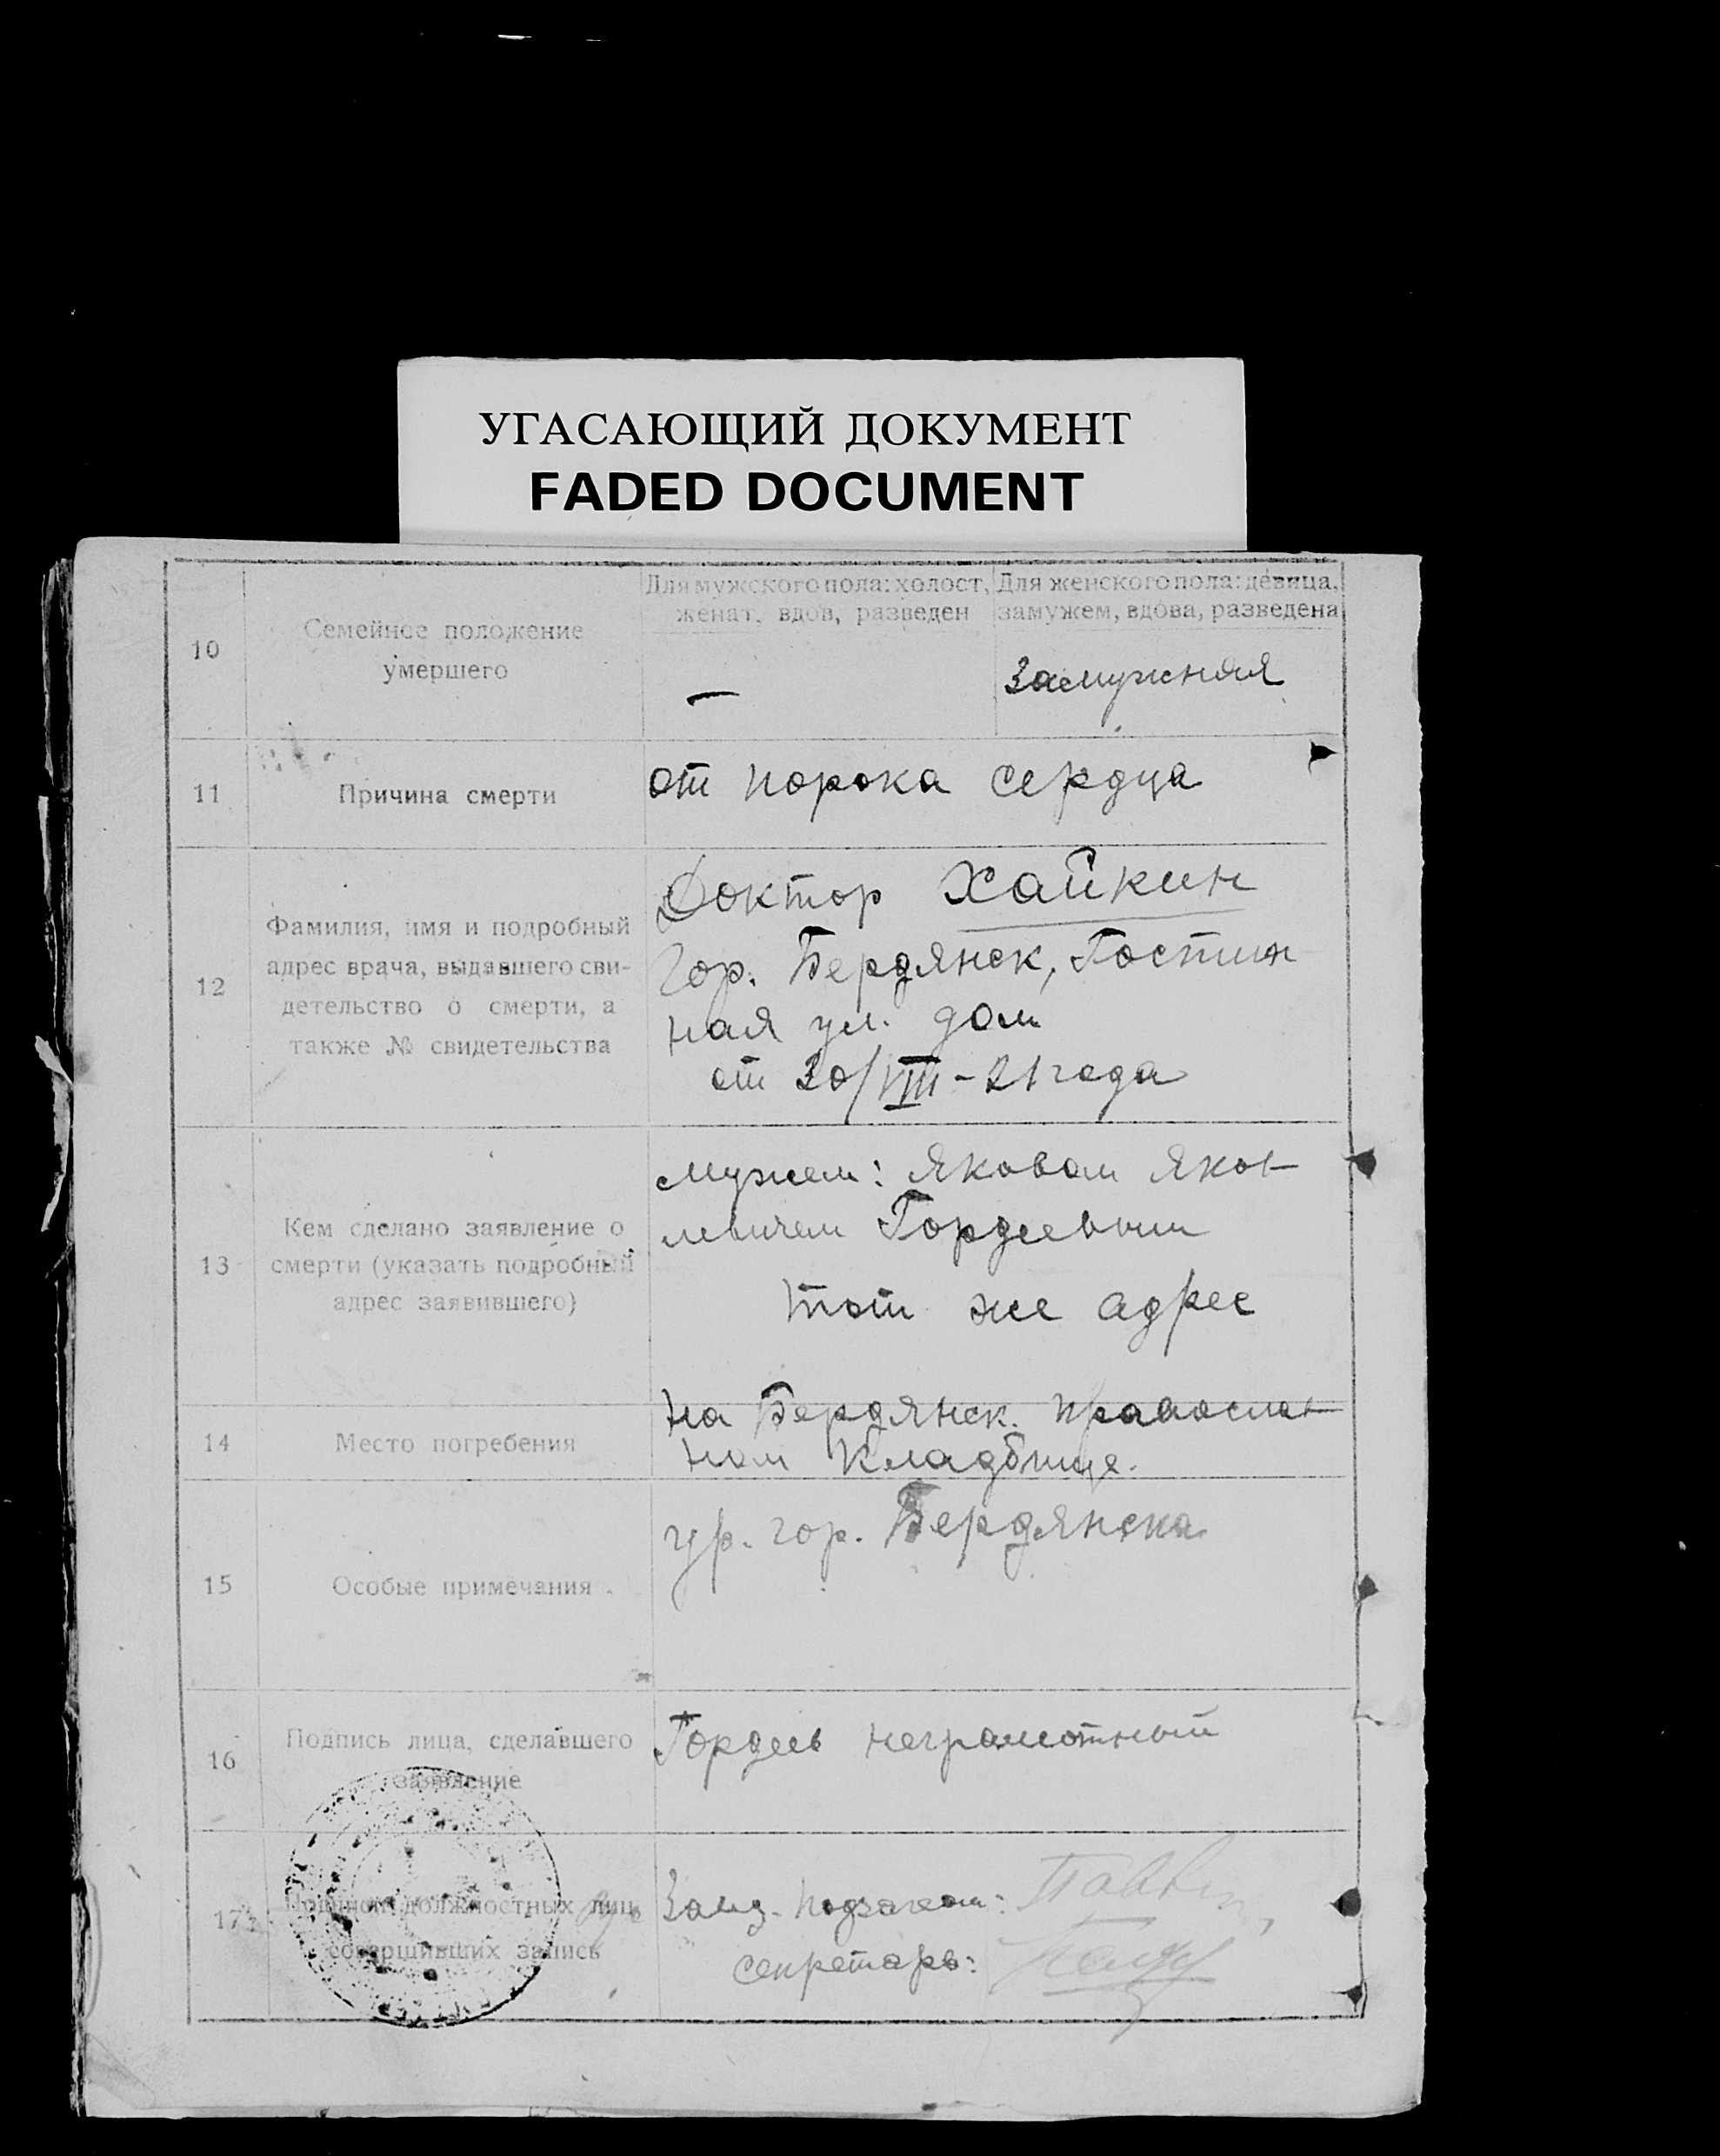 УГАСАЮЩИЙ ДОКУМЕНТ
FADED DOCUMENT
10
Семейное положение
умершего
Для мужского пола: холост,
женат, вдов, разведен
—
Для женского пола: девица,
замужем, вдова, разведена
Замужняя
11
Причина смерти
от порока сердца
12
Фамилия, имя и подробный
адрес врача, выдавшего сви-
детельство о смерти, а
также № свидетельства
Доктор Хайкин
Гор. Бердянск, Гостин
ная ул. дом
от 30/VIII-21 года
13
Кем сделано заявление о
смерти (указать подробный
адрес заявившего)
мужем: Яковом Яков
левичем Гордеевым
тот же адрес
14
Место погребения
на Бердянск. православ
ном кладбище.
15
Особые примечания
ур. гор. Бердянска
16
Подпись лица, сделавшего
заявление
Гордеев неграмотный
17
Подписи должностных лиц,
совершивших запись
Завед. подзагсом:
секретарь: